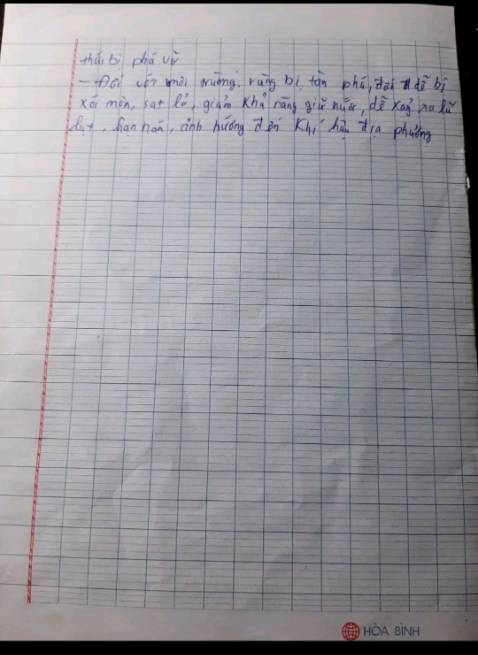 thái bị phá vỡ
- Đối với môi trường. rừng bị tàn phá, đất dễ bị
xói mòn, sạt lở, giảm khả năng giữ nước, dễ xảy ra lũ
lụt, hạn hán, ảnh hưởng đến khí hậu địa phương
HÒA BÌNH